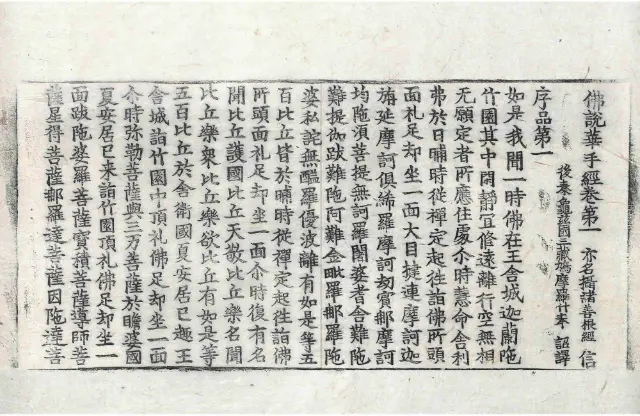 佛說華手經卷第一 亦名攝諸善根經 信
後秦龜茲國三藏鳩摩羅什奉 詔譯
序品第一
如是我聞一時佛在王舍城迦蘭陁
竹園其中閑靜宜修遠離行空無相
无願定者所應住處尒時慧命舍利
弗於日晡時從禪定起往詣佛所頭
面礼足却坐一面大目揵連摩訶迦
旃延摩訶俱絺羅摩訶劫賓那摩訶
均陁須菩提無訶羅闍婆耆舍難陁
難提伽跋難陁阿難金毗羅那羅陁
婆私詫無醯羅優波離有如是等五
百比丘皆於晡時從禪定起往詣佛
所頭面礼足却坐一面尒時復有名
聞比丘護國比丘天敬比丘樂名聞
比丘樂衆比丘樂欲比丘有如是等
五百比丘於舍衛國夏安居已趣王
舍城詣竹園中頂礼佛足却坐一面
尒時弥勒菩薩與三万菩薩於瞻婆國
夏安居已來詣竹園頂礼佛足却坐一
面跋陁婆羅菩薩寶積菩薩導師菩
薩星得菩薩那羅達菩薩因陁達菩